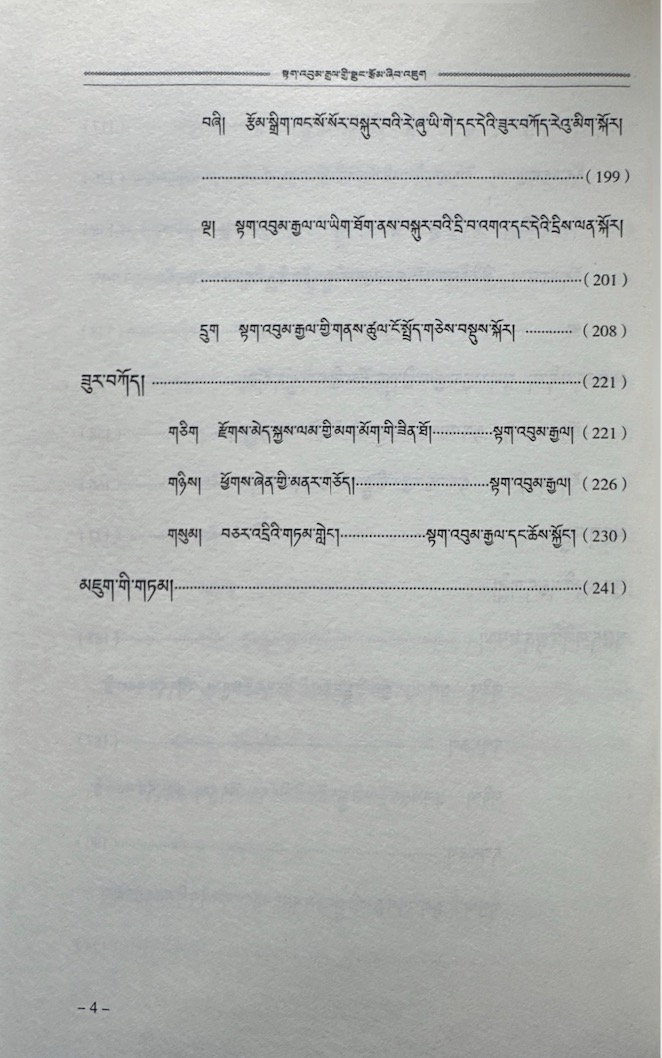 སྟག་འབུམ་རྒྱལ་གྱི་སྒྲུང་རྩོམ་ཞིབ་འཇུག
བཞི།  རྩོམ་སྒྲིག་ཁང་སོ་སོར་བསྐུར་བའི་རེ་ཞུ་ཡི་གེ་དང་དེའི་ཟུར་བཀོད་རེའུ་མིག་སྐོར།
……………………………………………………………( 199 )
ལྔ།  སྟག་འབུམ་རྒྱལ་ལ་ཡིག་ཐོག་ནས་བསྐུར་བའི་དྲི་བ་འགའ་དང་དེའི་དྲིས་ལན་སྐོར།
……………………………………………………………( 201 )
དྲུག  སྟག་འབུམ་རྒྱལ་གྱི་གནས་ཚུལ་ངོ་སྤྲོད་གཅེས་བསྡུས་སྐོར། ………… ( 208 )
ཟུར་བཀོད། ……………………………………………………………( 221 )
གཅིག  རྫོགས་མེད་སྐྱས་ལམ་གྱི་མག་མོག་གི་ཟིན་ཐོ།……………སྟག་འབུམ་རྒྱལ། ( 221 )
གཉིས།  ཕྱོགས་ཞེན་གྱི་མནར་གཅོད།…………………………སྟག་འབུམ་རྒྱལ། ( 226 )
གསུམ།  བཅར་འདྲིའི་གཏམ་གླེང་།…………………སྟག་འབུམ་རྒྱལ་དང་ཆོས་སྐྱོང་། ( 230 )
མཇུག་གི་གཏམ།……………………………………………………………( 241 )
– 4 –